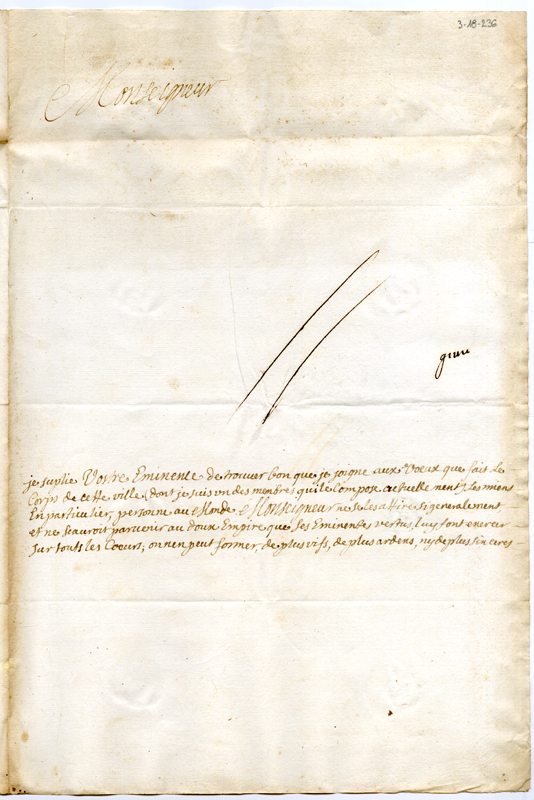 3-18-236
Monseigneur
je suplie Vostre Eminence de trouver bon que je joigne aux Voeux que fait le
Corps de cette ville (dont je suis un des membres qui le compose actuellement) Les miens
En particulier, persone au Monde, Monseigneur ne se les attire si generalement
et ne scauroit parvenir au doux Empire que ses Eminentes vertus luy font exercer
sur touts les Coeurs, on n'en peut former, de plus vifs, de plus ardens, ny de plus sinceres -